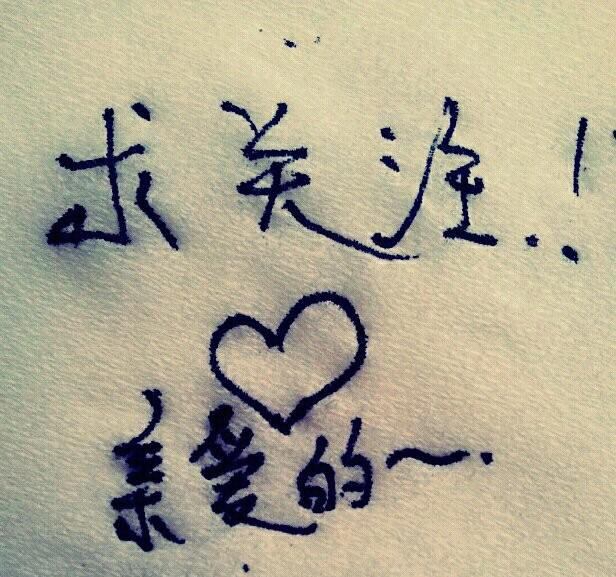 求关注.!
亲爱的~.